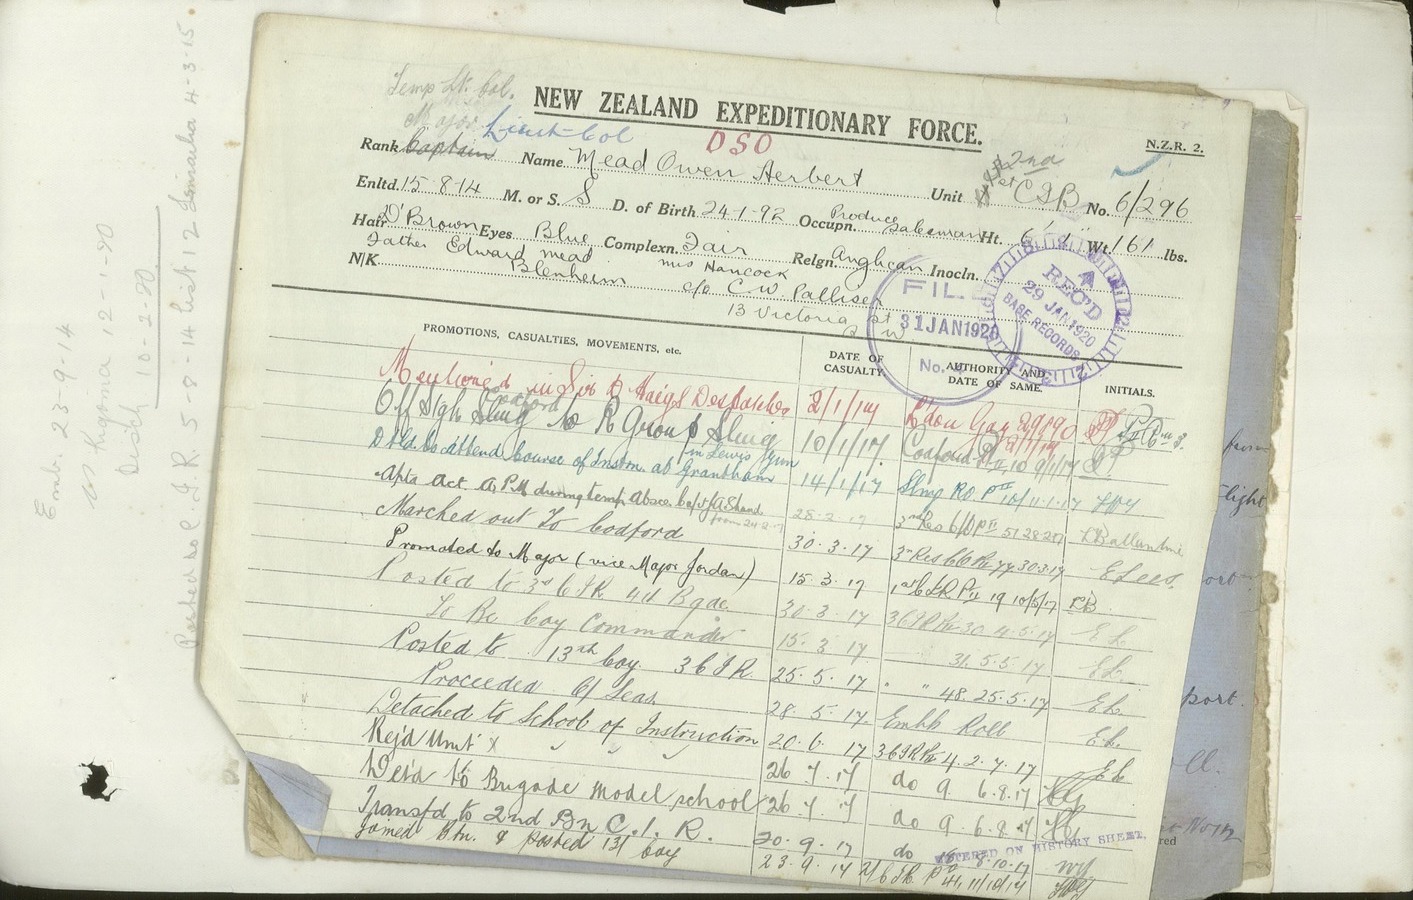 Temp Lt. Col.
NEW ZEALAND EXPEDITIONARY FORCE.
Major Lieut-Col DSO N.Z.R. 2.
Rank Captain Name Mead Owen Herbert Unit 2nd CIB No. 6/296
Enltd. 15-8-14 M. or S. S D. of Birth 24-1-92 Occupn. Produce Salesman Ht. Wt. 161 lbs.
Hair D' Brown Eyes Blue Complexn. Fair Relgn. Anglican Inocln.
N/K Father Edward Mead Mrs Hancock
Blenheim c/o C.W. Palliser
13 Victoria St
FILE
31 JAN 1920
No.
REC'D
29 JAN 1920
BASE RECORDS
PROMOTIONS, CASUALTIES, MOVEMENTS, etc. DATE OF CASUALTY. AUTHORITY AND DATE OF SAME. INITIALS.
Mentioned in Sir D Haig's Despatches 2/1/17 Ldon Gaz 29890
Off Stgh Sling to R Group Sling 10/1/17 Codford 10 9/1/17
Dtld. to attend Course of Instn. in Lewis Gun at Grantham 14/1/17 Sling RO Pt II 10/11-1-17
Apts Act. A.P.M during temp. absce. Capt. A. Shand 28-2-17 3rd Res
from 24-2-17
Marched out to Codford 30.3.17 3rd Res 30.3.17 E Lees
Promoted to Major (vice Major Jordan) 15.3.17 1st CIR Pt II 19 10/5/17
Posted to 3rd C I R 4th Bgde. 30.3.17 3CIR Pt II 30 4.5.17 E L.
To Be Coy Commander 15.3.17 31. 5.5.17 E L.
Posted to 13th Coy 3 C I R. 25.5.17 " " 48. 25.5.17 E L.
Proceeded O/Seas 28.5.17. Embk Roll E L.
Detached to School of Instruction 20.6.17 3CIR Pt II 4. 2.7.17 E L.
Rejd Unit X " " " 26.7.17 do 9 6.8.17
Det'd to Brigade Model School 26.7.17 do 9. 6.8.17
Transfd. to 2nd Bn C.I.R. 20.9.17 do 8.10.17
Joined Btn. & posted 1st Coy 23.9.17 11/10/17
ENTERED ON HISTORY SHEET.
Emb. 23-9-14
12-1-20
Disch 10-2-20
Posted to C.I.R. 5-8-14 list 12 Ismailia 4-3-15
from
flight
port.